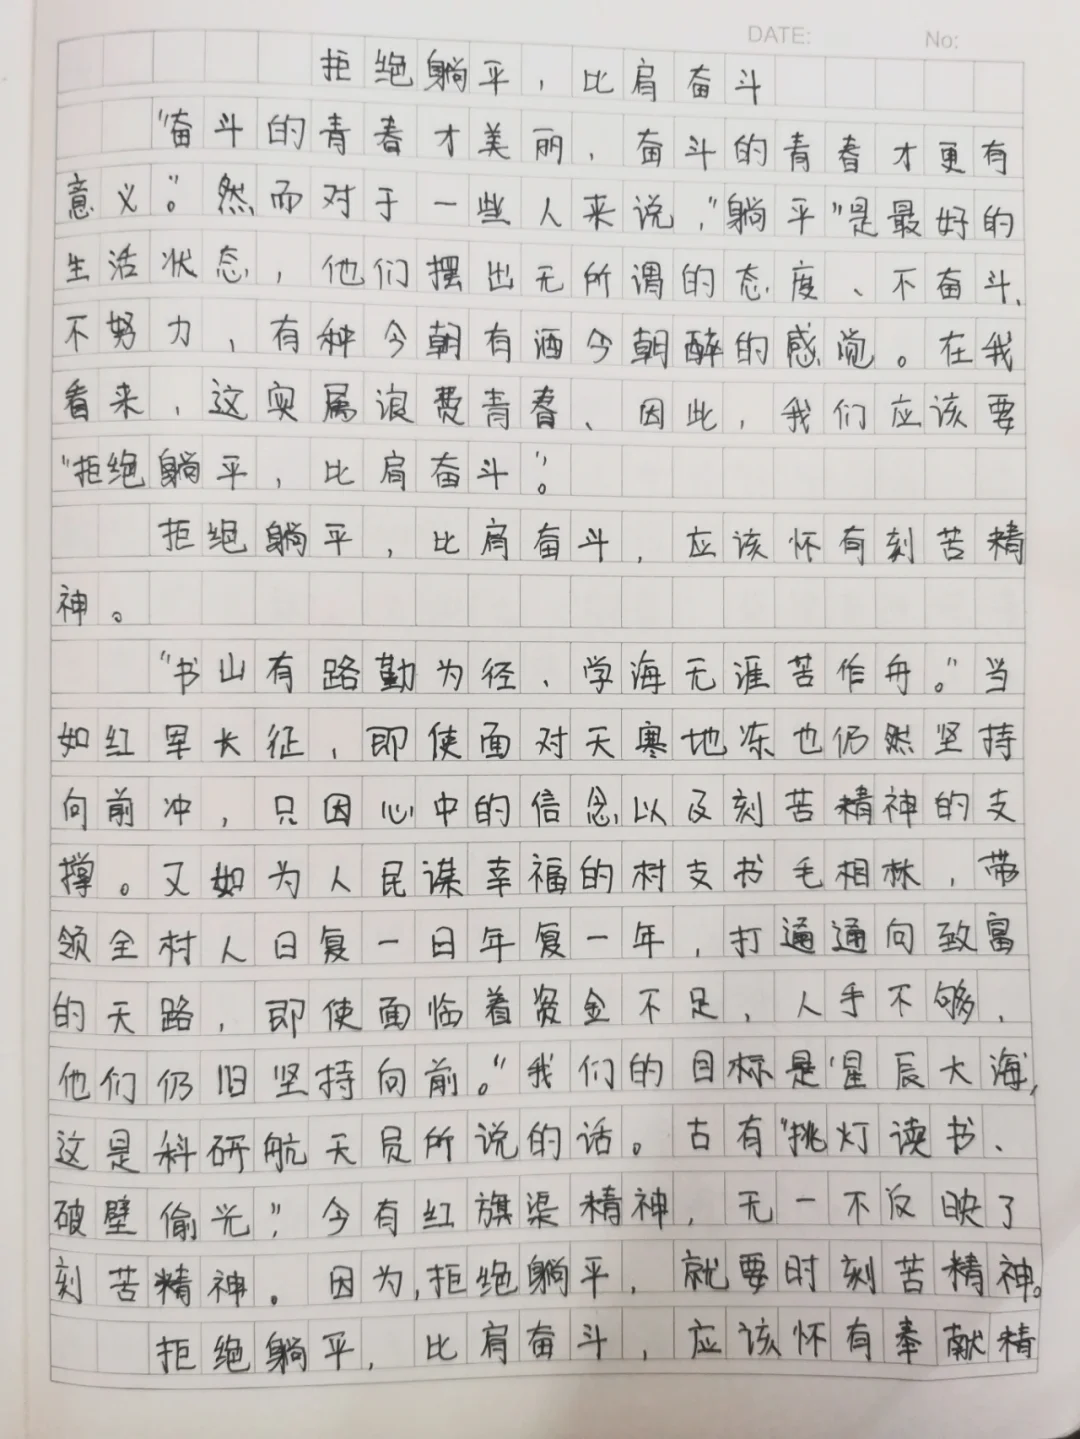 DATE: No:
拒绝躺平，比肩奋斗
“奋斗的青春才美丽，奋斗的青春才更有
意义”。然而对于一些人来说，“躺平”是最好的
生活状态，他们摆出无所谓的态度、不奋斗、
不努力，有种今朝有酒今朝醉的感觉。在我
看来，这实属浪费青春、因此，我们应该要
“拒绝躺平，比肩奋斗”。
拒绝躺平，比肩奋斗，应该怀有刻苦精
神。
“书山有路勤为径、学海无涯苦作舟。”当
如红军长征，即使面对天寒地冻也仍然坚持
向前冲，只因心中的信念以及刻苦精神的支
撑。又如为人民谋幸福的村支书毛相林，带
领全村人日复一日年复一年，打通通向致富
的天路，即使面临着资金不足，人手不够，
他们仍旧坚持向前。“我们的目标是星辰大海，
这是科研航天员所说的话。古有“挑灯读书、
破壁偷光”，今有红旗渠精神，无一不反映了
刻苦精神。因为，拒绝躺平，就要时刻苦精神。
拒绝躺平，比肩奋斗，应该怀有奉献精